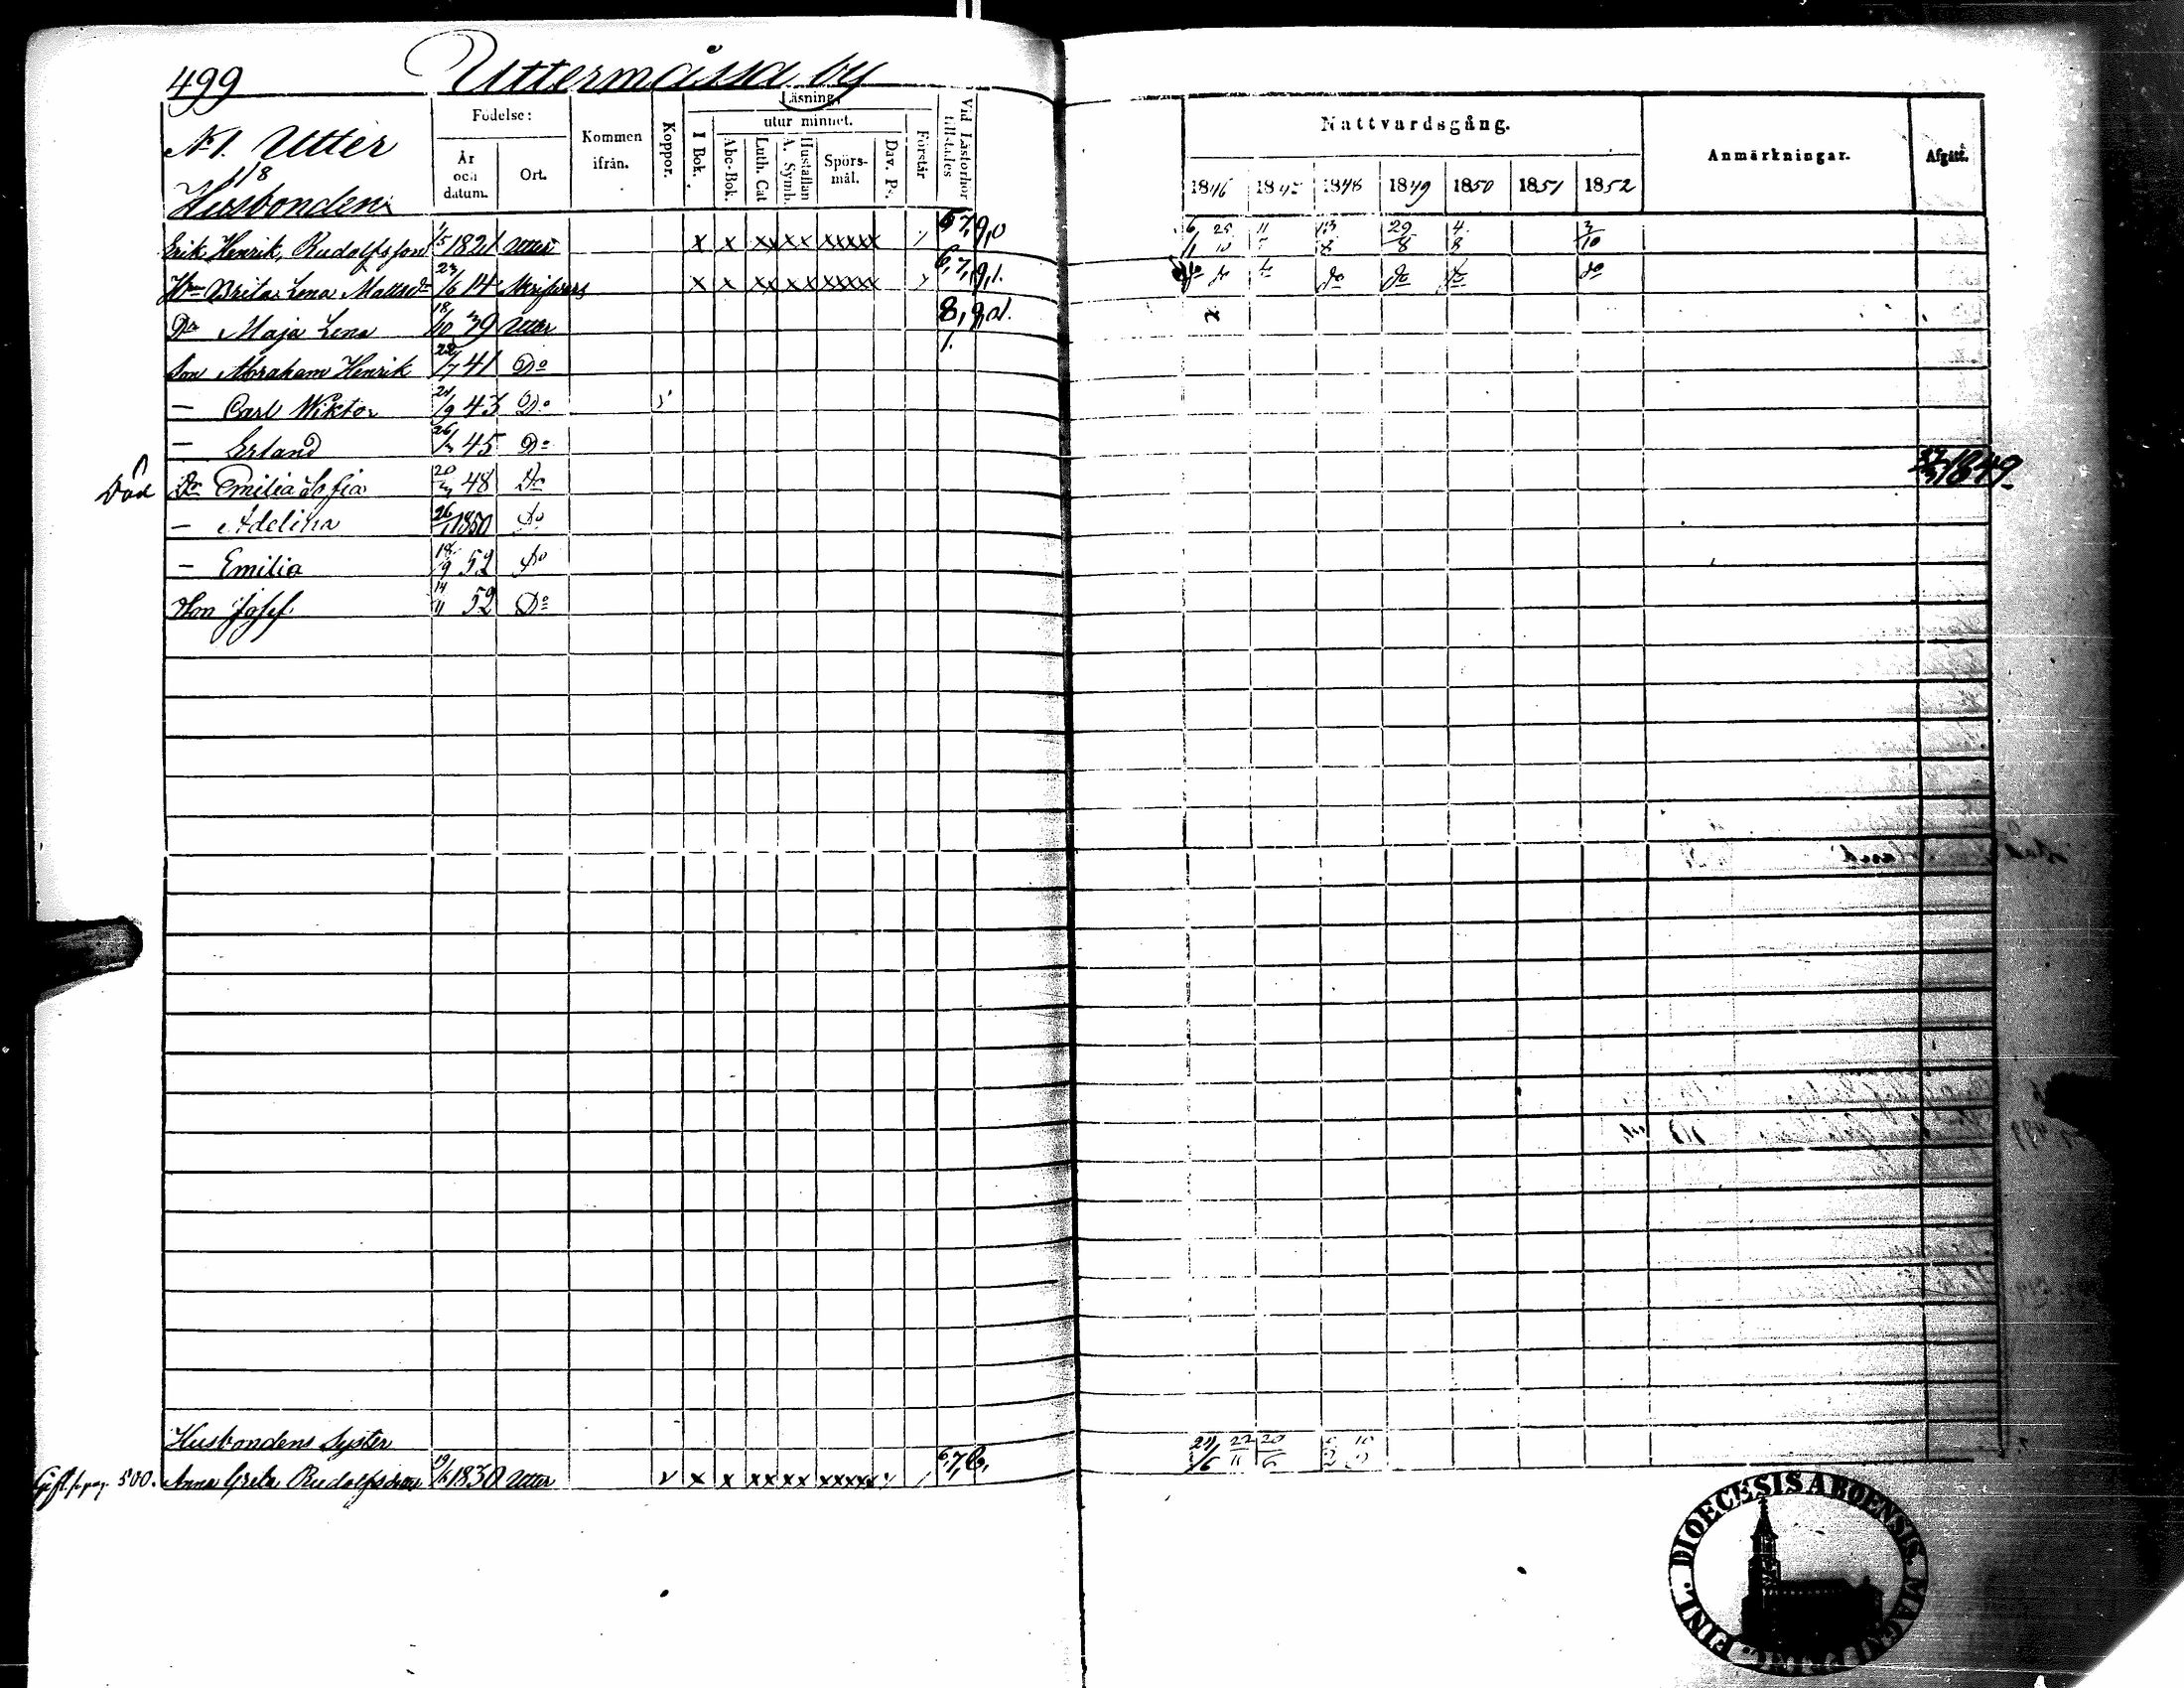 499 Uttermåssa by
N 1. Utter
1/8
Husbonden
Födelse:
År och datum.
Ort.
Kommen ifrån.
Koppor.
Läsning,
utur minnet.
I Bok.
Abc-Bok.
Luth. Cat
A. Symb.
Hustaflan
Spörsmål.
Dav. Ps.
Förstår
Vid Läsförhör tillstädes
Nattvardsgång.
1846 1847 1848 1849 1850 1851 1852
Anmärkningar.
Afgått.
Erik Henrik Rudolfsson 1/5 1821 Utter x x xx xx xxxxx 6,7,9,0 29/8 3/10
Hn Brita Lena Mattsdr 23/6 14 x x xx xx xxxxx 6,7,9,1. do do do do do
Dr Maja Lena 18/10 39 Utter 8,9,0,1.
Son Abraham Henrik 22/7 41 Do
— Carl Wiktor 21/9 43 Do
— Erland 45 Do
Död Dr Emilia Sofia 48 Do 1849
— Adelina 26/1 1850 Do
— Emilia 18/9 52 Do
Son Josef 14/11 52 Do
Husbondens Syster
Gift pag. 500. Anna Greta Rudolfsdotter 19/6 1830 Utter v x x xx xx xxxxx 6,7,8, 21/6 22/11 20/6
FINL. DIOECESIS ABOENSIS. MAGNI PRINC.